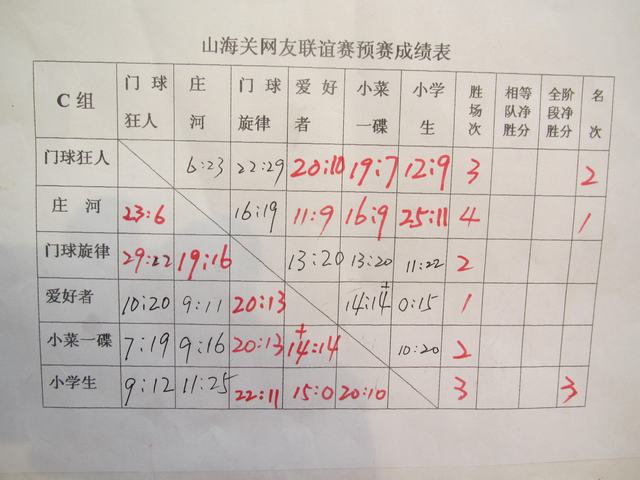 山海关网友联谊赛预赛成绩表
C 组 门球狂人 庄河 门球旋律 爱好者 小菜一碟 小学生 胜场次 相等队净胜分 全阶段净胜分 名次
门球狂人 6:23 22:29 20:10 19:7 12:9 3 2
庄河 23:6 16:19 11:9 16:9 25:11 4 1
门球旋律 29:22 19:16 13:20 13:20 11:22 2
爱好者 10:20 9:11 20:13 14:14+ 0:15 1
小菜一碟 7:19 9:16 20:13 +14:14 10:20 2
小学生 9:12 11:25 22:11 15:0 20:10 3 3